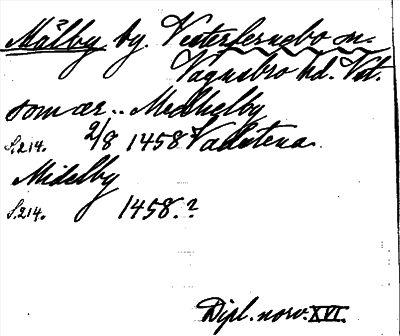 Målby by. Vesterfernebo sn.
Vagnsbro hd. Vst.
som ær .. Medhelby
S.214. 2/8 1458 Vadstena.
Midelby
S.214. 1458.?
Dipl. norv. XVI.